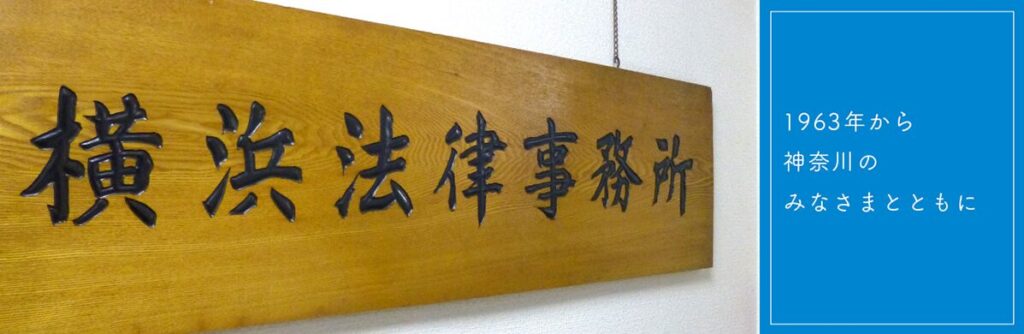 横浜法律事務所
1963年から
神奈川の
みなさまとともに